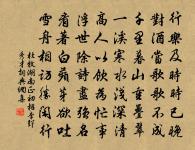 行樂及時時已晚
對酒當歌歌不成
千里暮山重疊翠
一溪寒水淺深清
高人以飲為忙事
浮世除詩盡強名
看著白蘋芽欲吐
雪舟相訪勝閒行
杜牧湖南正初招李郢
秀才詞典網集